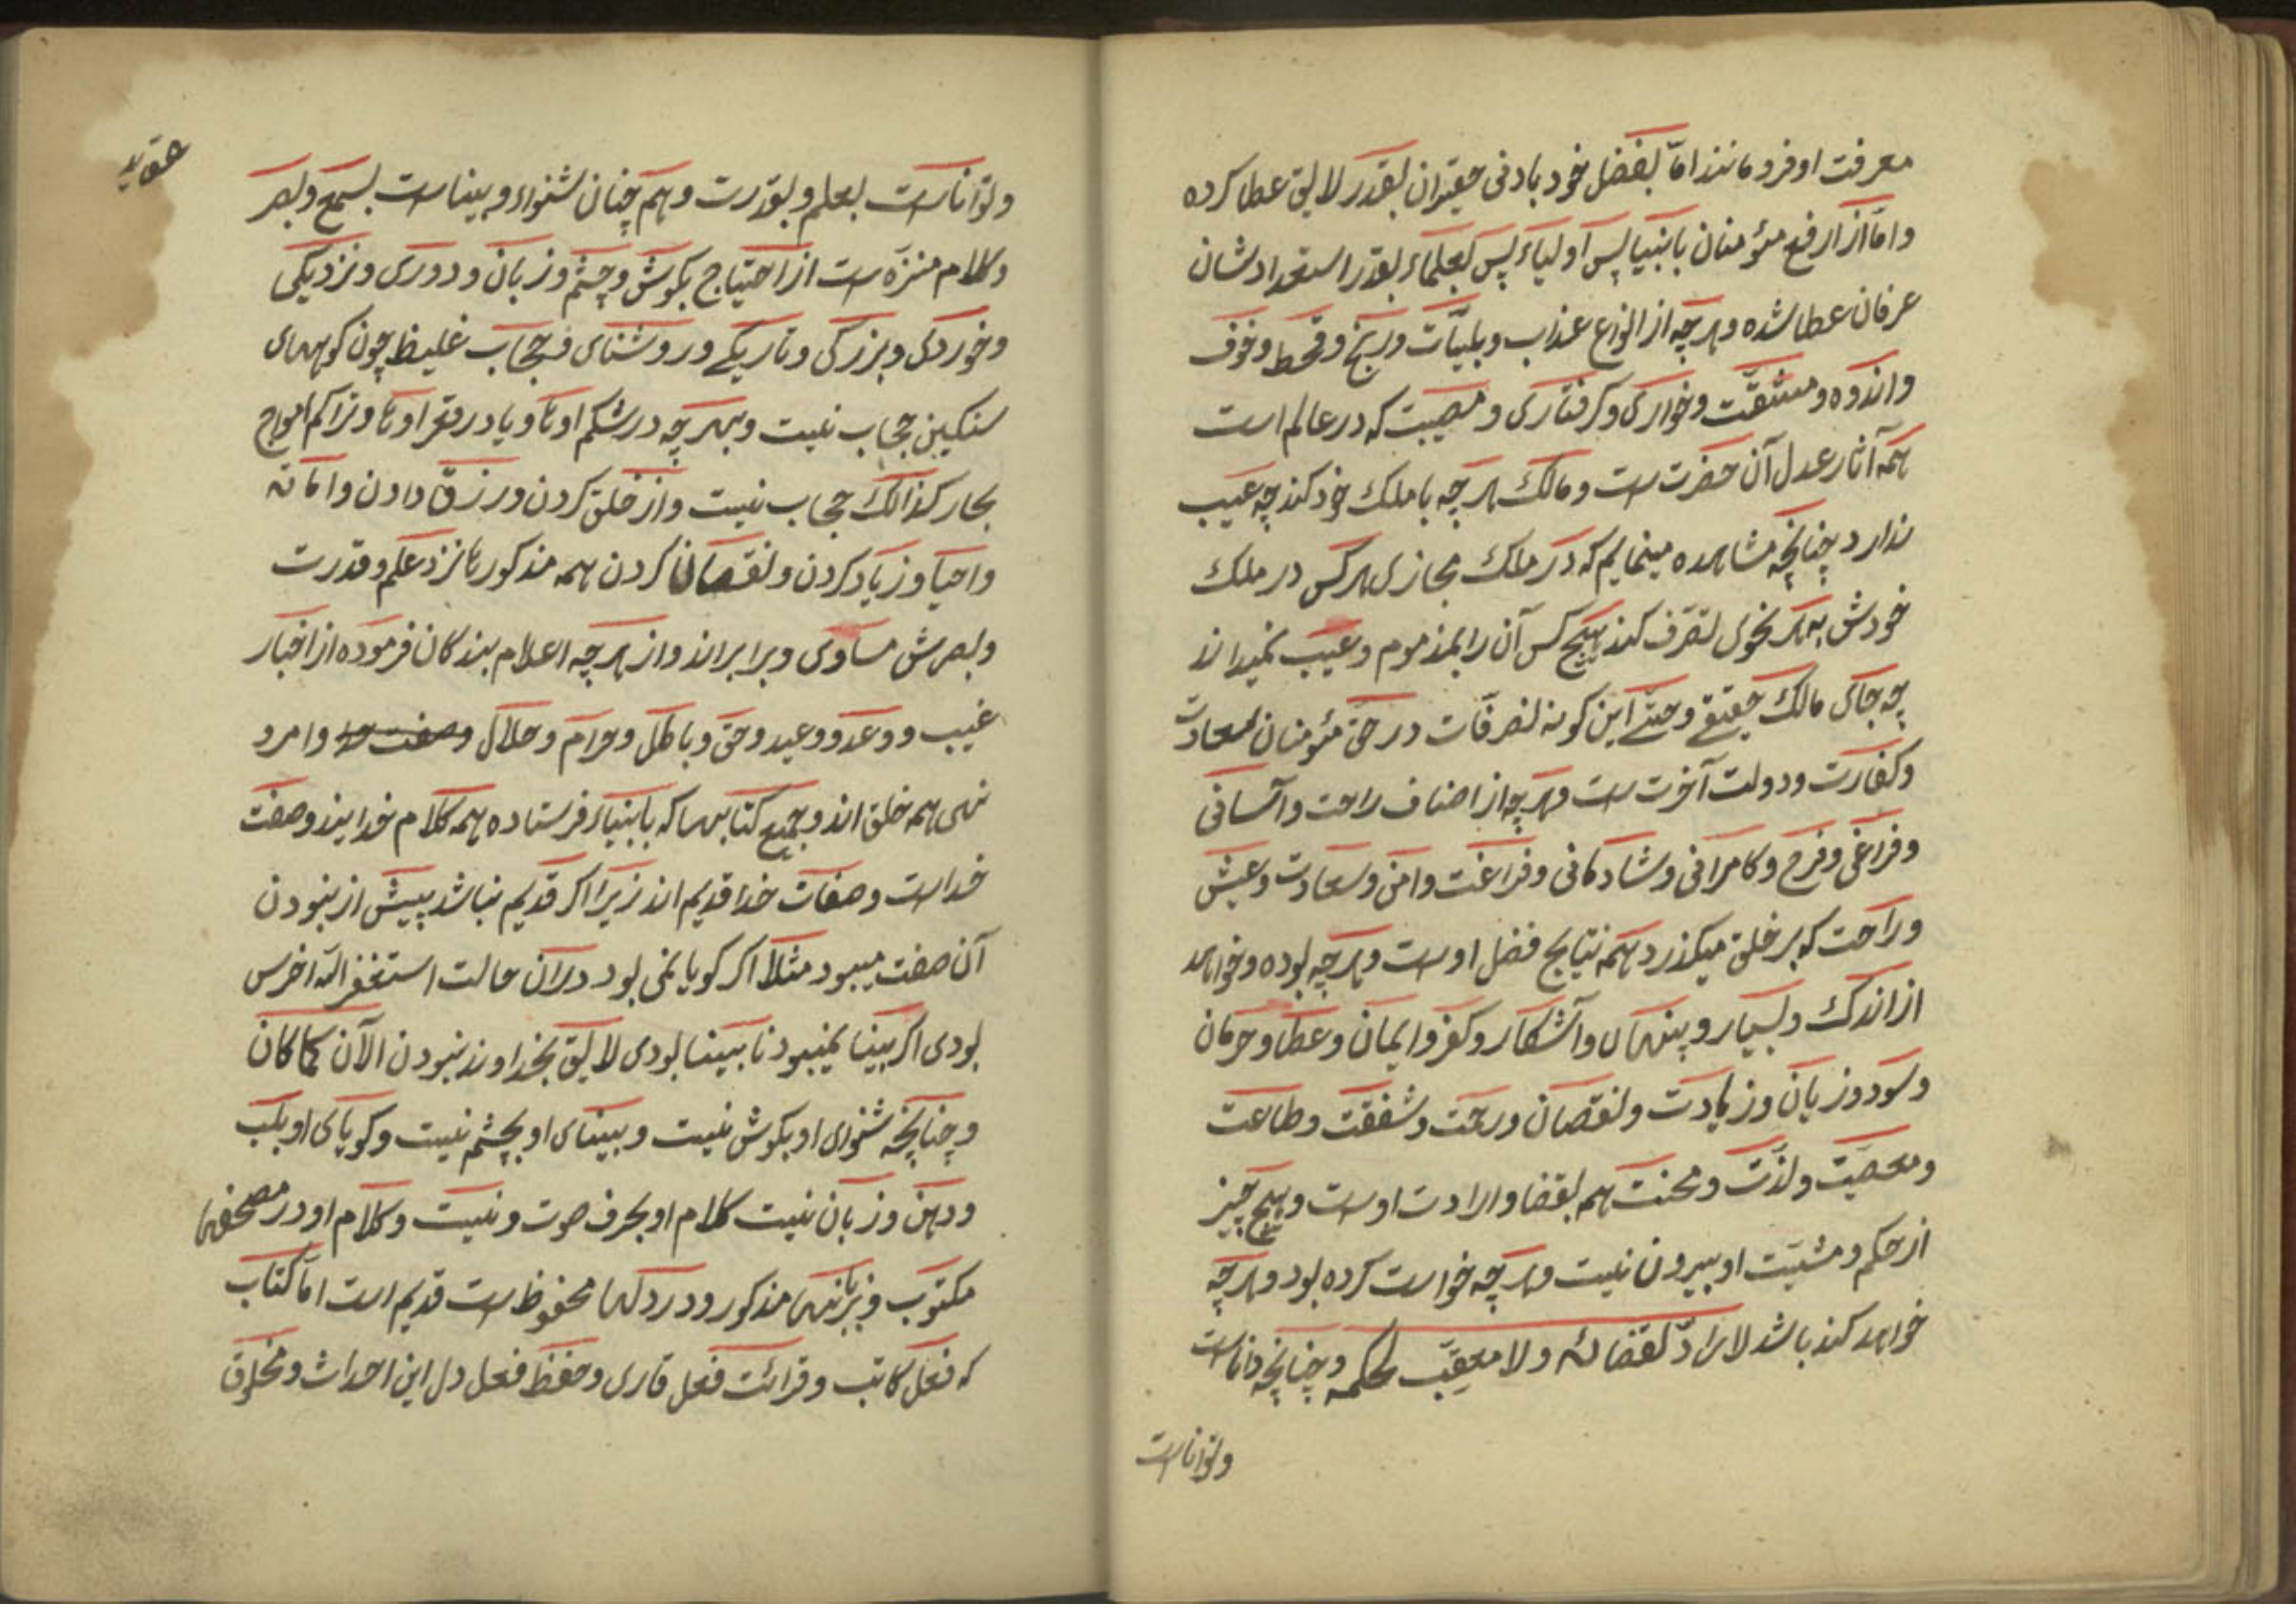 معرفت او فرو مانند امّا بفضل خود بادنی حقیران بقدر لایق عطا کرده
و امّا از ارفع مؤمنان بانبیا پس اولیاء پس بعلماء بقدر استعدادشان
عرفان عطا شده و هرچه از انواع عذاب و بلیّات و رنج و قحط و خوف
و اندوه و مشقّت و خواری و گرفتاری و مصیبت که در عالم است
همه آثار عدل آن حضرت ست و مالک هرچه با ملک خود کند چه عیب
ندارد چنانچه مشاهده مینمایم که در ملک مجازی هرکس در ملک
خودش به هر نحوی تصرّف کند هیچ کس آن را بمذموم و عیب نمیداند
چه جای مالک حقیقے و حتّے این گونه تصرفات در حق مؤمنان سعادت
و کفارت و دولت آخرت ست و هرچه از اصناف راحت و آسانی
و فراغی و فرح و کامرانی و شادمانی و فراغت و امن و سعادت و عیش
و راحت که بر خلق میگذرد همه نتایج فضل اوست و هرچه بوده و خواهد
از اندک و بسیار و پنهان و آشکار و کفر و ایمان و عطا و حرمان
و سود و زیان و زیادت و نقصان و رحمت و شفقت و طاعت
و معصیت و لذّت و محنت همه بقضا و ارادت اوست و هیچ چیز
از حکم و مشیّت او بیرون نیست و هرچه خواست کرده بود و هرچه
خواهد کند باشد لا رادّ لقضائه ولا معقّب لحکمه و چنانچه داناست
و تواناست
عقاید
و تواناست بعلم و بقدرت و هم چنان شنواء و بیناست بسمع و بصر
و کلام منزّه ست از احتیاج بگوش و چشم و زبان و دوری و نزدیکی
و خوردکی و بزرگی و تاریکے و روشنای و حجاب غلیظ چون کوههای
سنگین حجاب نیست و بهرچه در شکم اوتا و یا در قعر اوتا و تراکم امواج
بحار کذالک حجاب نیست و از خلق کردن و رزق دادن و اماته
و احیا و زیاد کردن و نقصان کردن همه مذکورها نزد علم و قدرت
و بصرش مساوی و برابراند و از هرچه اعلام بندگان فرموده از اخبار
غیب و وعد و وعید و حق و باطل و حرام و حلال وصفت خدا و امر و
نهی همه خلق اند و جمیع کتابها که بانبیاء فرستاده همه کلام خدایند و صفت
خداست و صفات خدا قدیم اند زیرا اگر قدیم نباشد پیش از نبودن
آن صفت میبود مثلا اگر گویا نمی بود در آن حالت استغفر الله اخرس
بودی اگر بینا نمیبود نا بینا بودی لایق بخداوند نبودن الآن کما کان
و چنانچه شنوای او بگوش نیست و بینای او بچشم نیست و گویای او بلب
و دهن و زبان نیست کلام او بحرف صوت و نیست و کلام او در مصحفها
مکتوب و بزبانها مذکور و در دلها محفوظ ست قدیم است امّا کتاب
که فعل کاتب و قرائت فعل قاری و حفظ فعل دل این احداث و مخلوق